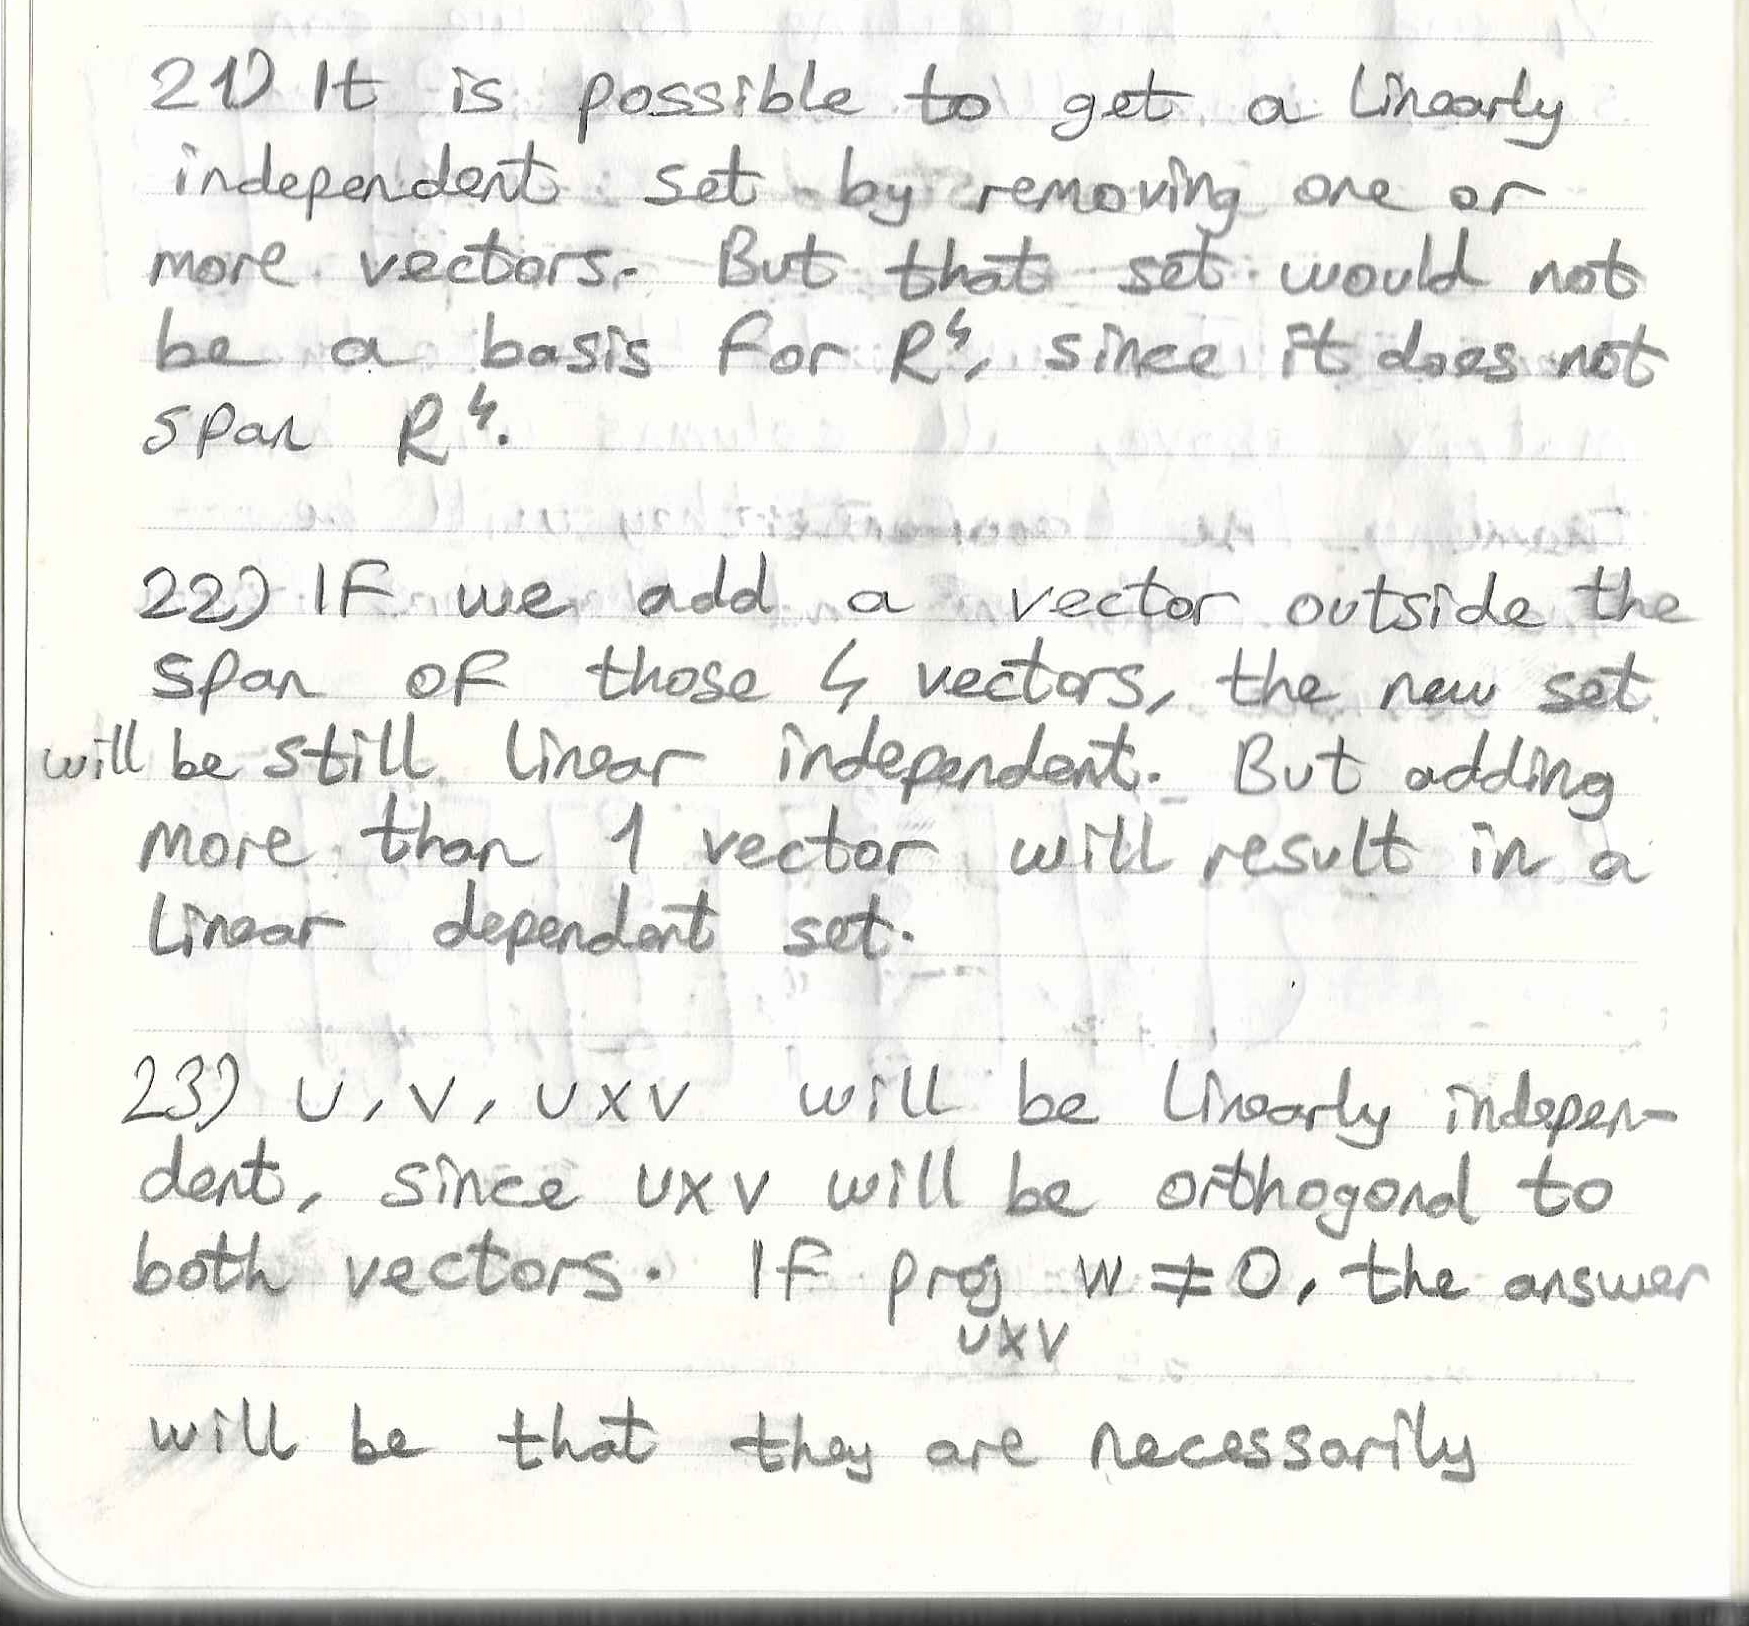 21) It is possible to get a linearly
independent set by removing one or
more vectors. But that set would not
be a basis for R⁴, since it does not
span R⁴.
22) If we add a vector outside the
span of those 4 vectors, the new set
will be still linear independent. But adding
more than 1 vector will result in a
linear dependent set.
23) U, V, UXV will be linearly indepen-
dent, since UXV will be orthogonal to
both vectors. If proj W ≠ 0, the answer
UXV
will be that they are necessarily